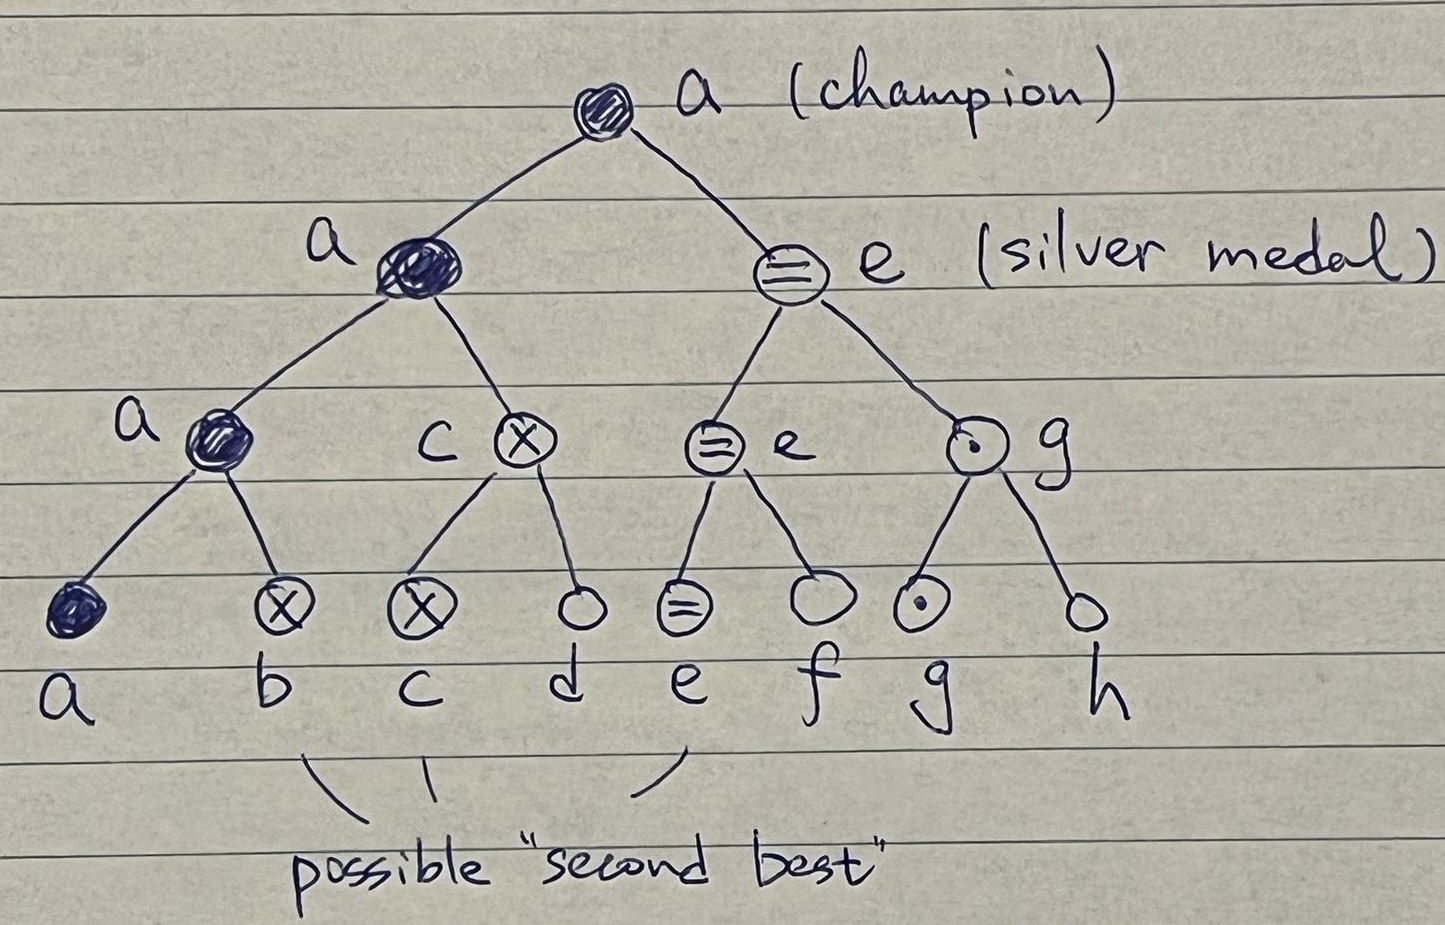 a (champion)
a e (silver medal)
a c e g
a b c d e f g h
possible "second best"